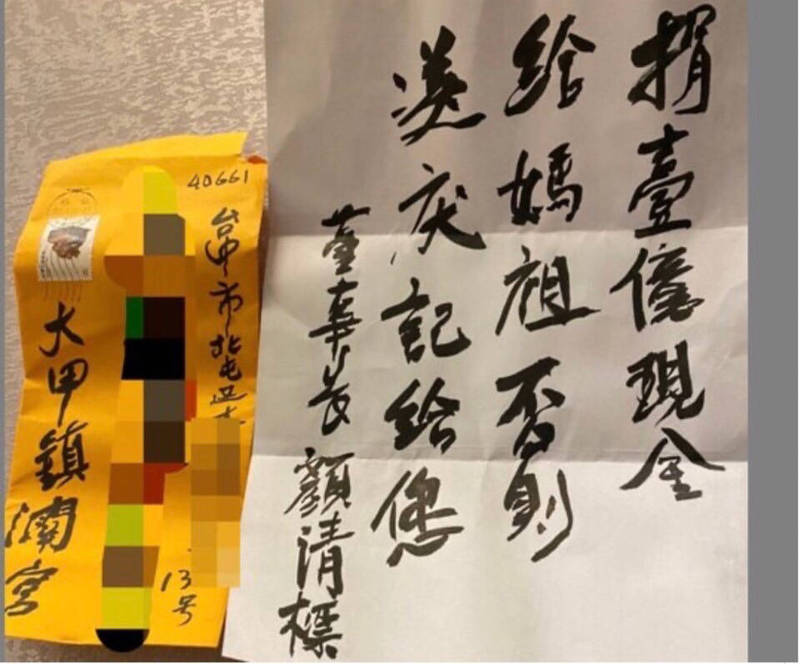 捐壹億現金
給媽祖否則
送庆記給您
董事长 顏清標
40661
台中市北屯区
13号
大甲鎮瀾宮